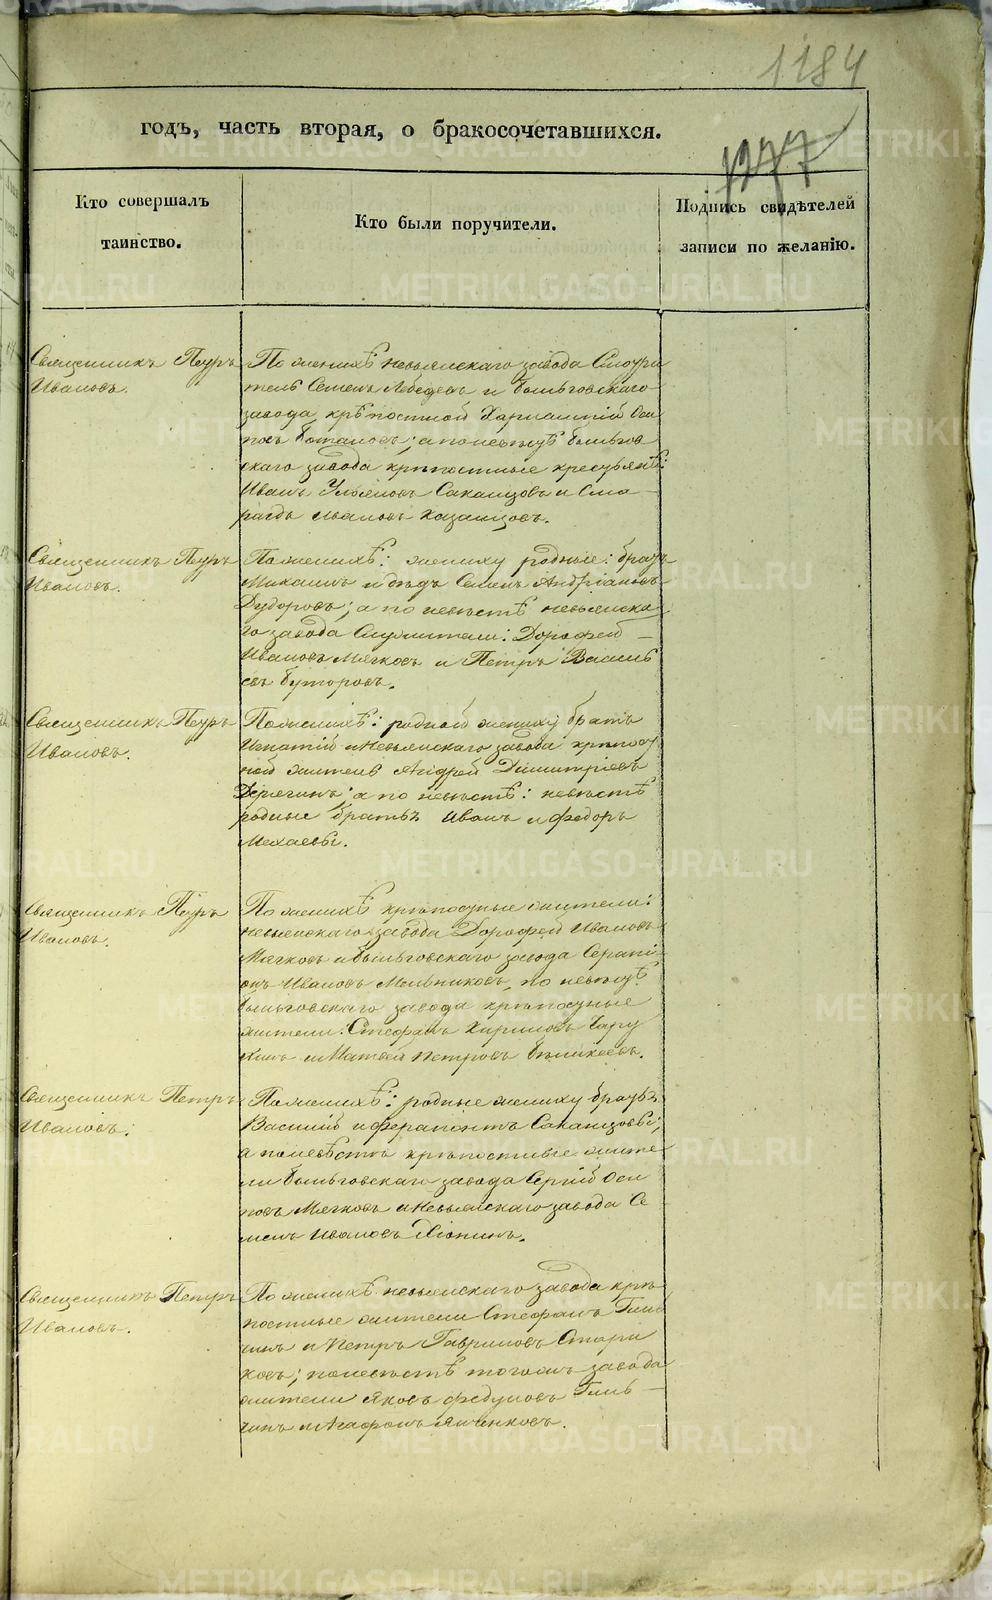 1184
годъ, часть вторая, о бракосочетавшихся.
1277
Кто совершалъ
таинство.
Кто были поручители.
Подпись свидѣтелей
записи по желанію.
Священникъ Петръ
Ивановъ.
По женихѣ невьянскаго завода Смотри
тель Семенъ Лебедевъ и быньговскаго
завода крѣпостной Харлампій Оси
повъ; а по невѣстѣ быньгов
скаго завода крѣпостные
Иванъ Ульяновъ Саканцовъ и Сма
рагдъ Ивановъ Казанцовъ.
Священникъ Петръ
Ивановъ.
По женихѣ: жениху родные: братъ
Михаилъ и дѣдъ Семенъ Андріановъ
Дудоровъ; а по невѣстѣ невьянска
го завода Служители: Дорофей
Ивановъ Мягковъ и Петръ Василь
евъ Буторовъ.
Священникъ Петръ
Ивановъ.
По женихѣ: родной жениху братъ
Игнатій и Невьянскаго завода крѣпост
ной житель Андрей Димитріевъ
а по невѣстѣ: невѣстѣ
родные братья Иванъ и Федоръ
Мехаевы.
Священникъ Петръ
Ивановъ.
По женихѣ крѣпостные жители:
невьянскаго завода Дорофей Ивановъ
Мягковъ и быньговскаго завода Серапі
онъ Ивановъ Мельниковъ, по невѣстѣ
быньговскаго завода крѣпостные
жители: Стефанъ Кириловъ
и Матвей Петровъ
Священникъ Петръ
Ивановъ.
По женихѣ: родные жениху братья
Василій и Ферапонтъ Саканцовы;
а по невѣстѣ крѣпостные жите
ли быньговскаго завода Сергій Оси
повъ Мягковъ и Невьянскаго завода Се
менъ Ивановъ
Священникъ Петръ
Ивановъ.
По женихѣ невьянскаго завода крѣ
постные жители Стефанъ
и Петръ Гавриловъ Стари
ковъ; по невѣстѣ того жъ завода
жители Яковъ Федуловъ
и Агафонъ
METRIKI.GASO-URAL.RU